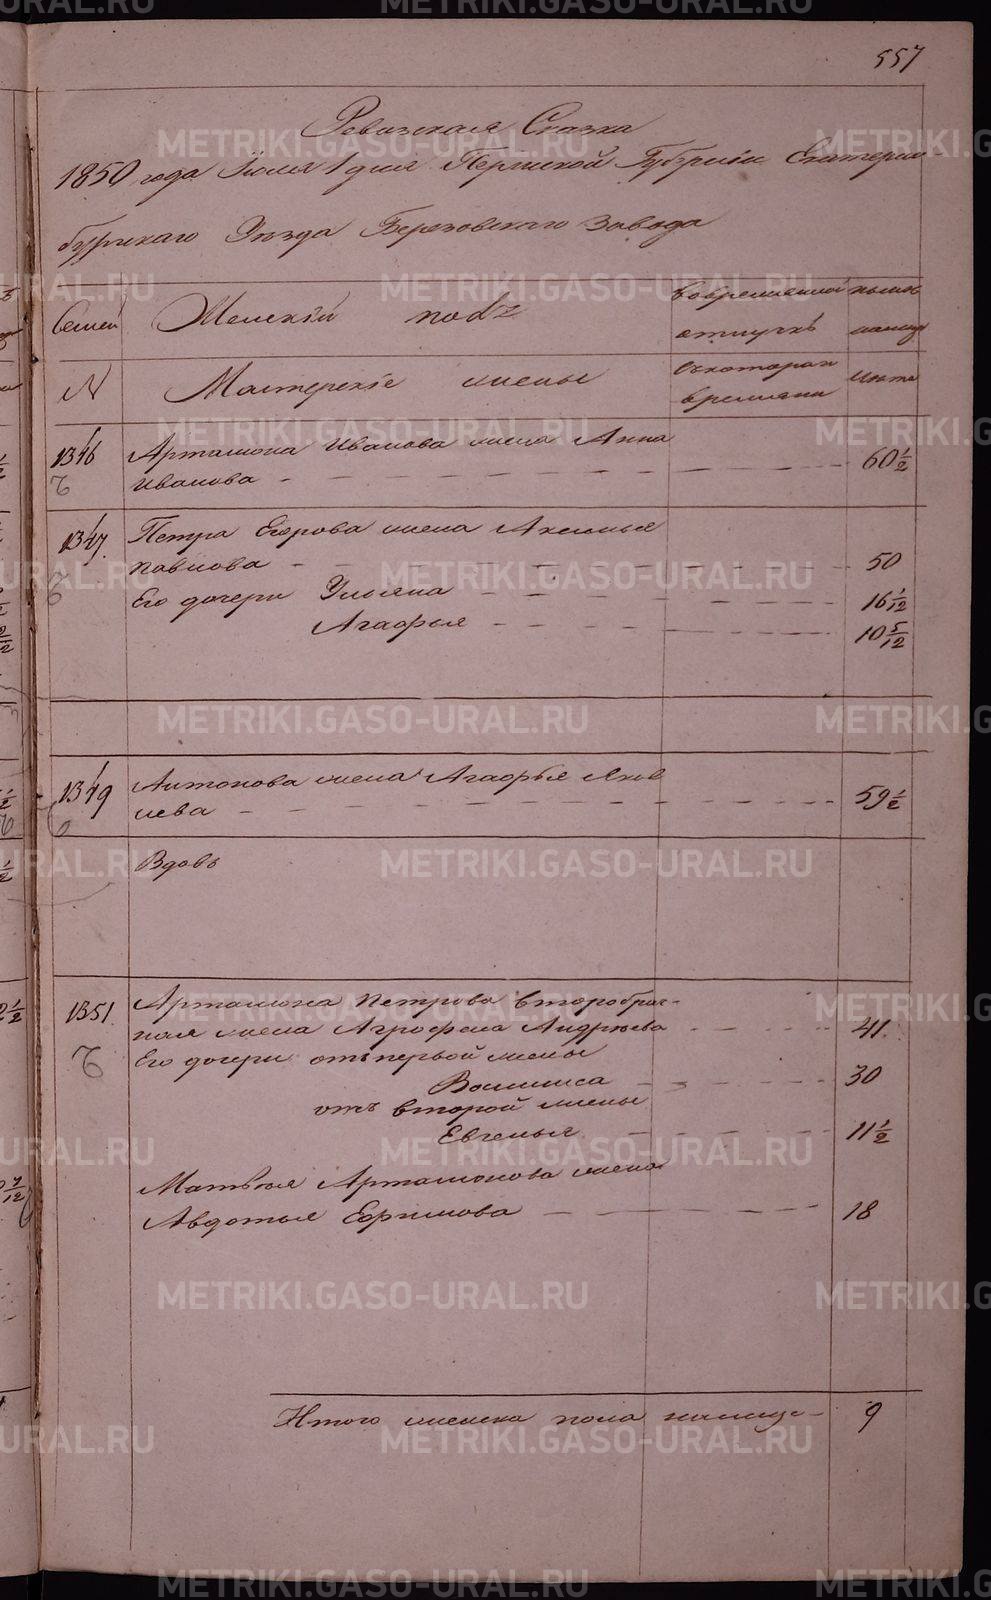 557
Ревизская Сказка
1850 года Іюля 1 дня Пермской Губерніи Екатерин-
бургскаго Уезда Березовскаго Завода
Семей Женскій полъ Во временной отлучкѣ нынѣ на лицо
N Мастерскіе жены Съ котораго времяни Лѣта
1346 Артамона Иванова жена Анна
Иванова 60 1/2
1347 Петра Егорова жена Аксинья
Павлова 50
Его дочери Ульяна 16 1/12
Агафья 10 5/12
1349 Антонова жена Агафья Яков
лева 59 1/2
Вдовъ
1351 Артамона Петрова второбрач-
ная жена Агрофена Андреева 41
Его дочери отъ первой жены
Василиса 30
отъ второй жены
Евгенья 11 1/2
Матвея Артамонова жена
Авдотья Ефимова 18
Итого женска пола на лицо 9
METRIKI.GASO-URAL.RU